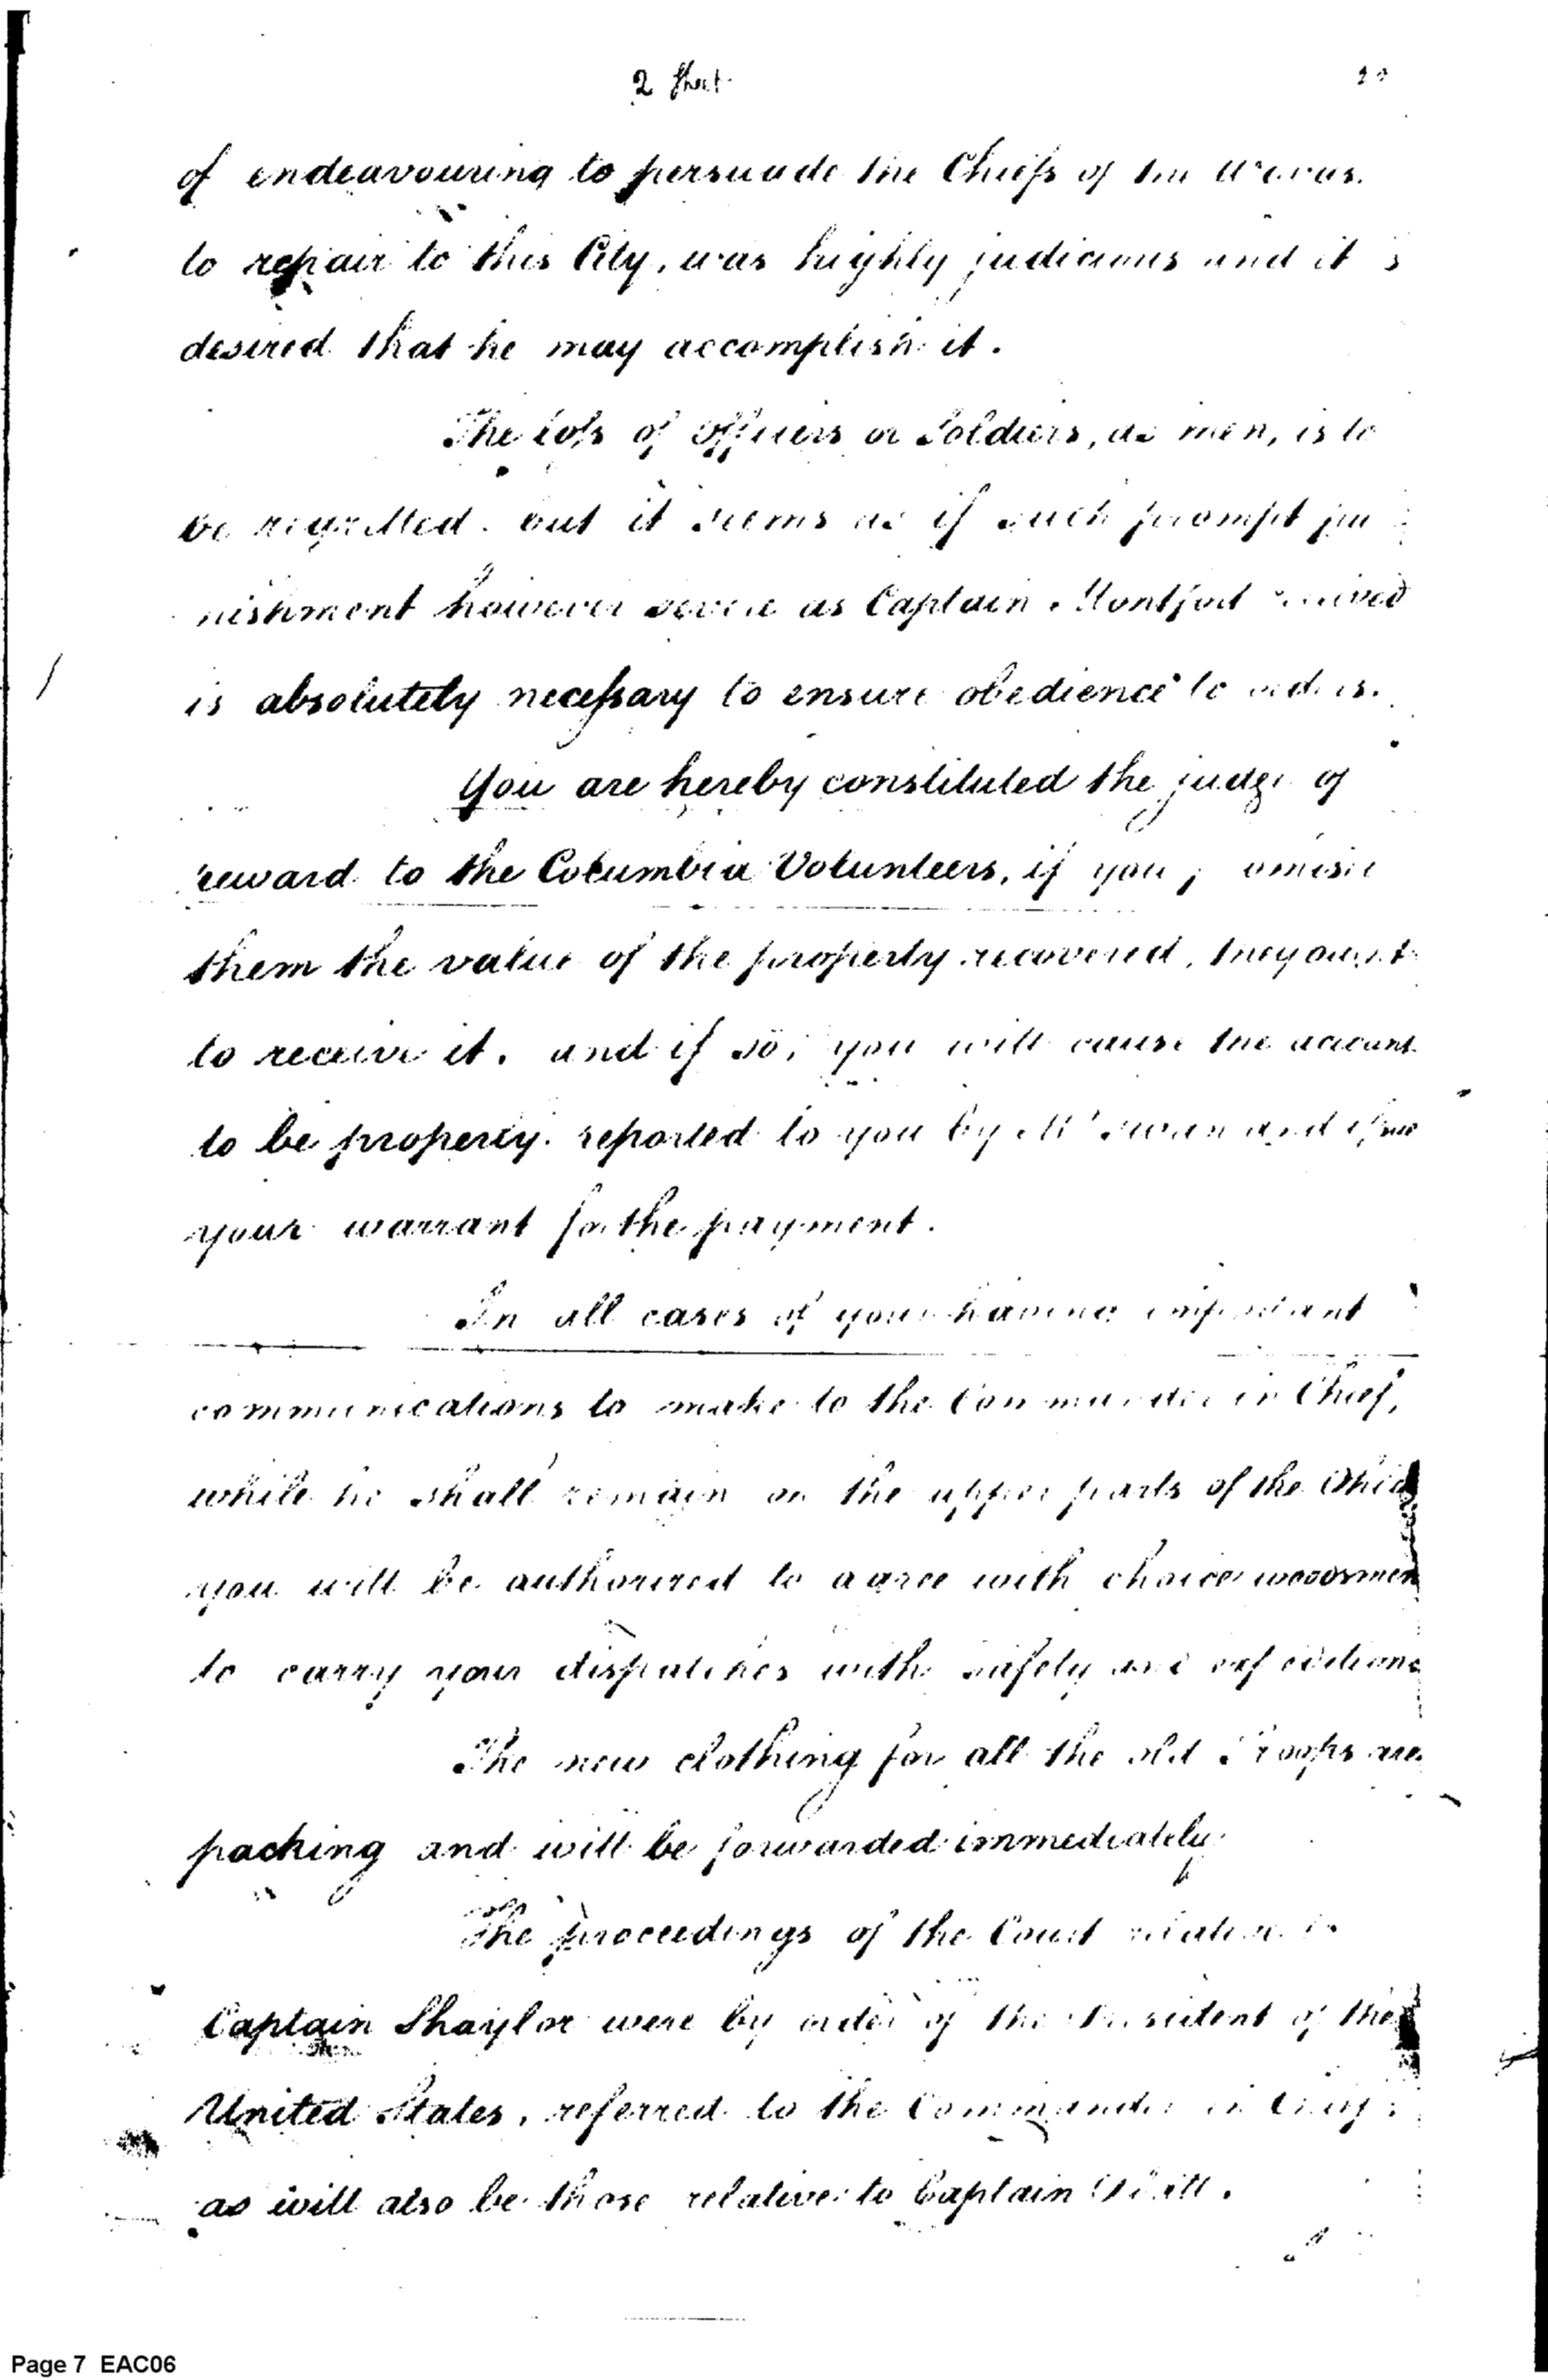 2 Sheet
of endeavouring to persuade the Chiefs of the
to repair to this City, was highly judicious and it is
desired that he may accomplish it.
The loss of Officers or Soldiers, as men, is to
be regretted. but it seems as if such prompt pu
nishment however severe as Captain Montfort received
is absolutely necessary to ensure obedience to orders.
You are hereby constituted the judge of
reward to the Columbia Volunteers, if you promise
them the value of the property recovered, they ought
to receive it. and if so, you will cause the account
to be properly reported to you by Mr Swan and issue
your warrant for the payment.
In all cases of your having important
communications to make to the Commander in Chief,
while he shall remain on the upper parts of the Ohio
you will be authorized to agree with choice woodsmen
to carry your dispatches with safety and expedition
The new clothing for all the old Troops are
packing and will be forwarded immediately
The proceedings of the Court relative to
Captain Shaylor were by order of the President of the
United States, referred to the Commander in Chief
as will also be those relative to Captain
Page 7 EAC06